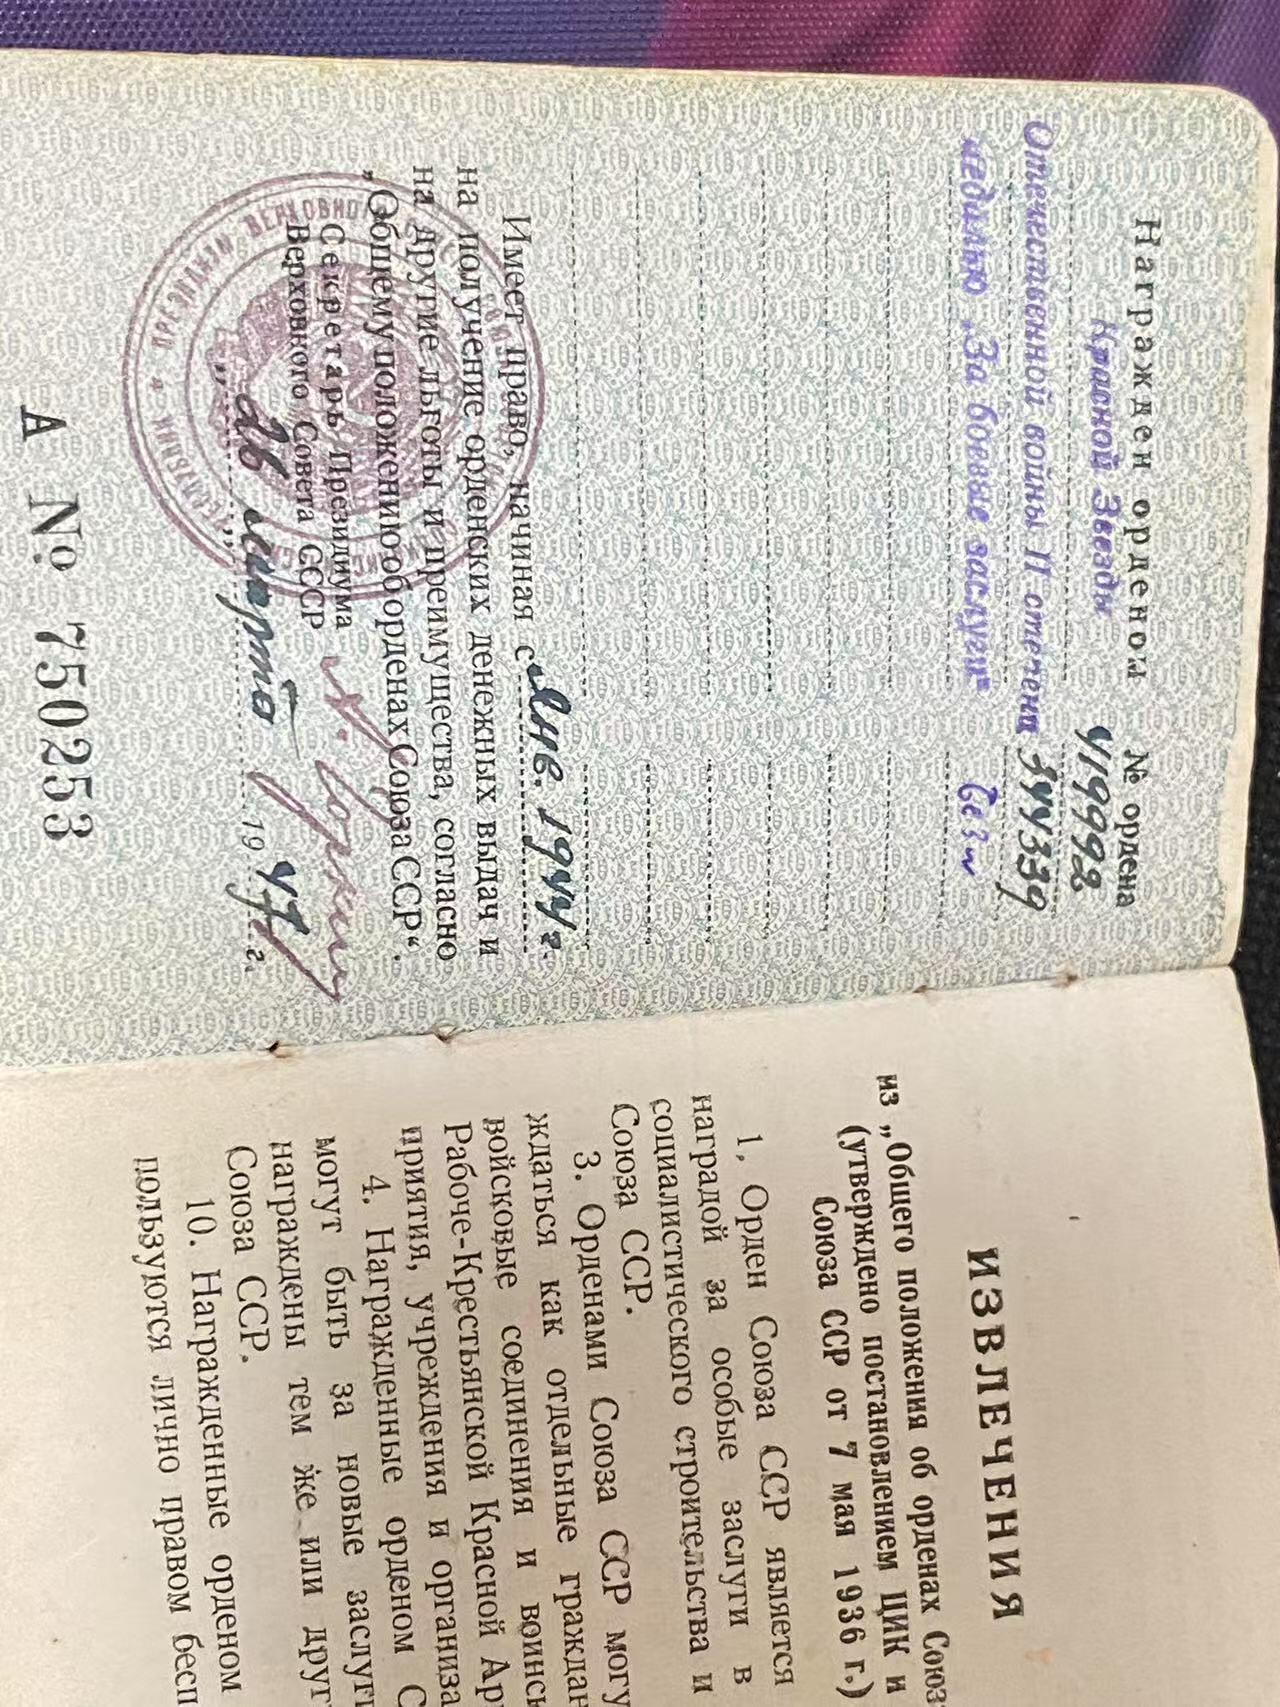 Награжден орденом № ордена
Красной Звезды 419992
Отечественной войны II степени 344339
медалью „За боевые заслуги" без н
Имеет право, начиная с Янв. 1944 г.
на получение орденских денежных выдач и
на другие льготы и преимущества, согласно
„Общему положению об орденах Союза ССР“.
Секретарь Президиума
Верховного Совета СССР
„26" марта 1947 г.
А № 750253
ПРЕЗИДИУМ ВЕРХОВНОГО
ИЗВЛЕЧЕНИЯ
из „Общего положения об орденах Союз
(утверждено постановлением ЦИК и
Союза ССР от 7 мая 1936 г.)
1. Орден Союза ССР является
наградой за особые заслуги в
социалистического строительства и
Союза ССР.
3. Орденами Союза ССР могу
ждаться как отдельные граждан
войсковые соединения и воинск
Рабоче-Крестьянской Красной Ар
приятия, учреждения и организа
4. Награжденные орденом С
могут быть за новые заслуги
награждены тем же или друг
Союза ССР.
10. Награжденные орденом
пользуются лично правом бесп